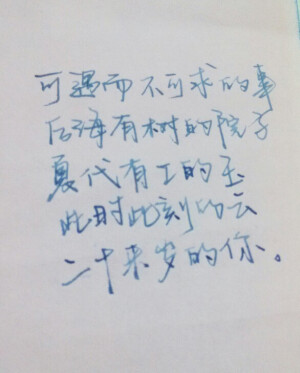 可遇而不可求的事
后海有树的院子
夏代有工的玉
此时此刻的云
二十来岁的你。